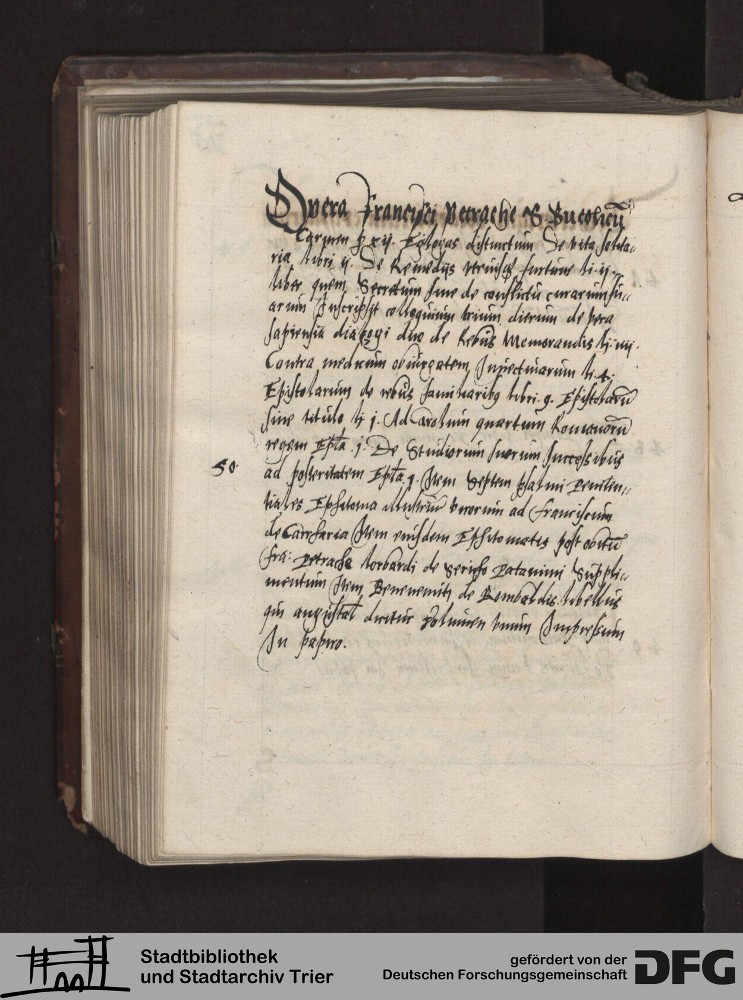 Opera Francisci petrache & Bucolicū
Carmen p xij. Eglogas distinctum De vita solita-
ria libri ij. De Remedijs utriusq3 fortune li. ij.
liber quem Secretum sive de conflictu curarum su-
arum Inscripsit colloquium trium dierum de vera
sapientia dialogi duo de Rebus Memorandis li. iiij.
Contra medicum obiurgatem Inuectiuarum li. 4.
Epistolarum de rebus familiaribꝫ libri. 9. Epistolarū
sine titulo li j. Ad Carolum quartum Romanorū
regem Epl̄a .j. De Studiorum suorum successibus
ad posteritatem Epl̄a j. Item Septem psalmi peniten-
50
tiales Ephitoma illustriū virorum ad Franciscum
de Carrharia Item eiusdem Ephitomatis post obitū
Fra: petrache lombardi de Serico patauini Suppli-
mentum Item Beneuenuti de Rombaldis libellus
qui augustal' dicitur volumen vnum Impressum
In papiro.
Stadtbibliothek
und Stadtarchiv Trier
gefördert von der
Deutschen Forschungsgemeinschaft
DFG